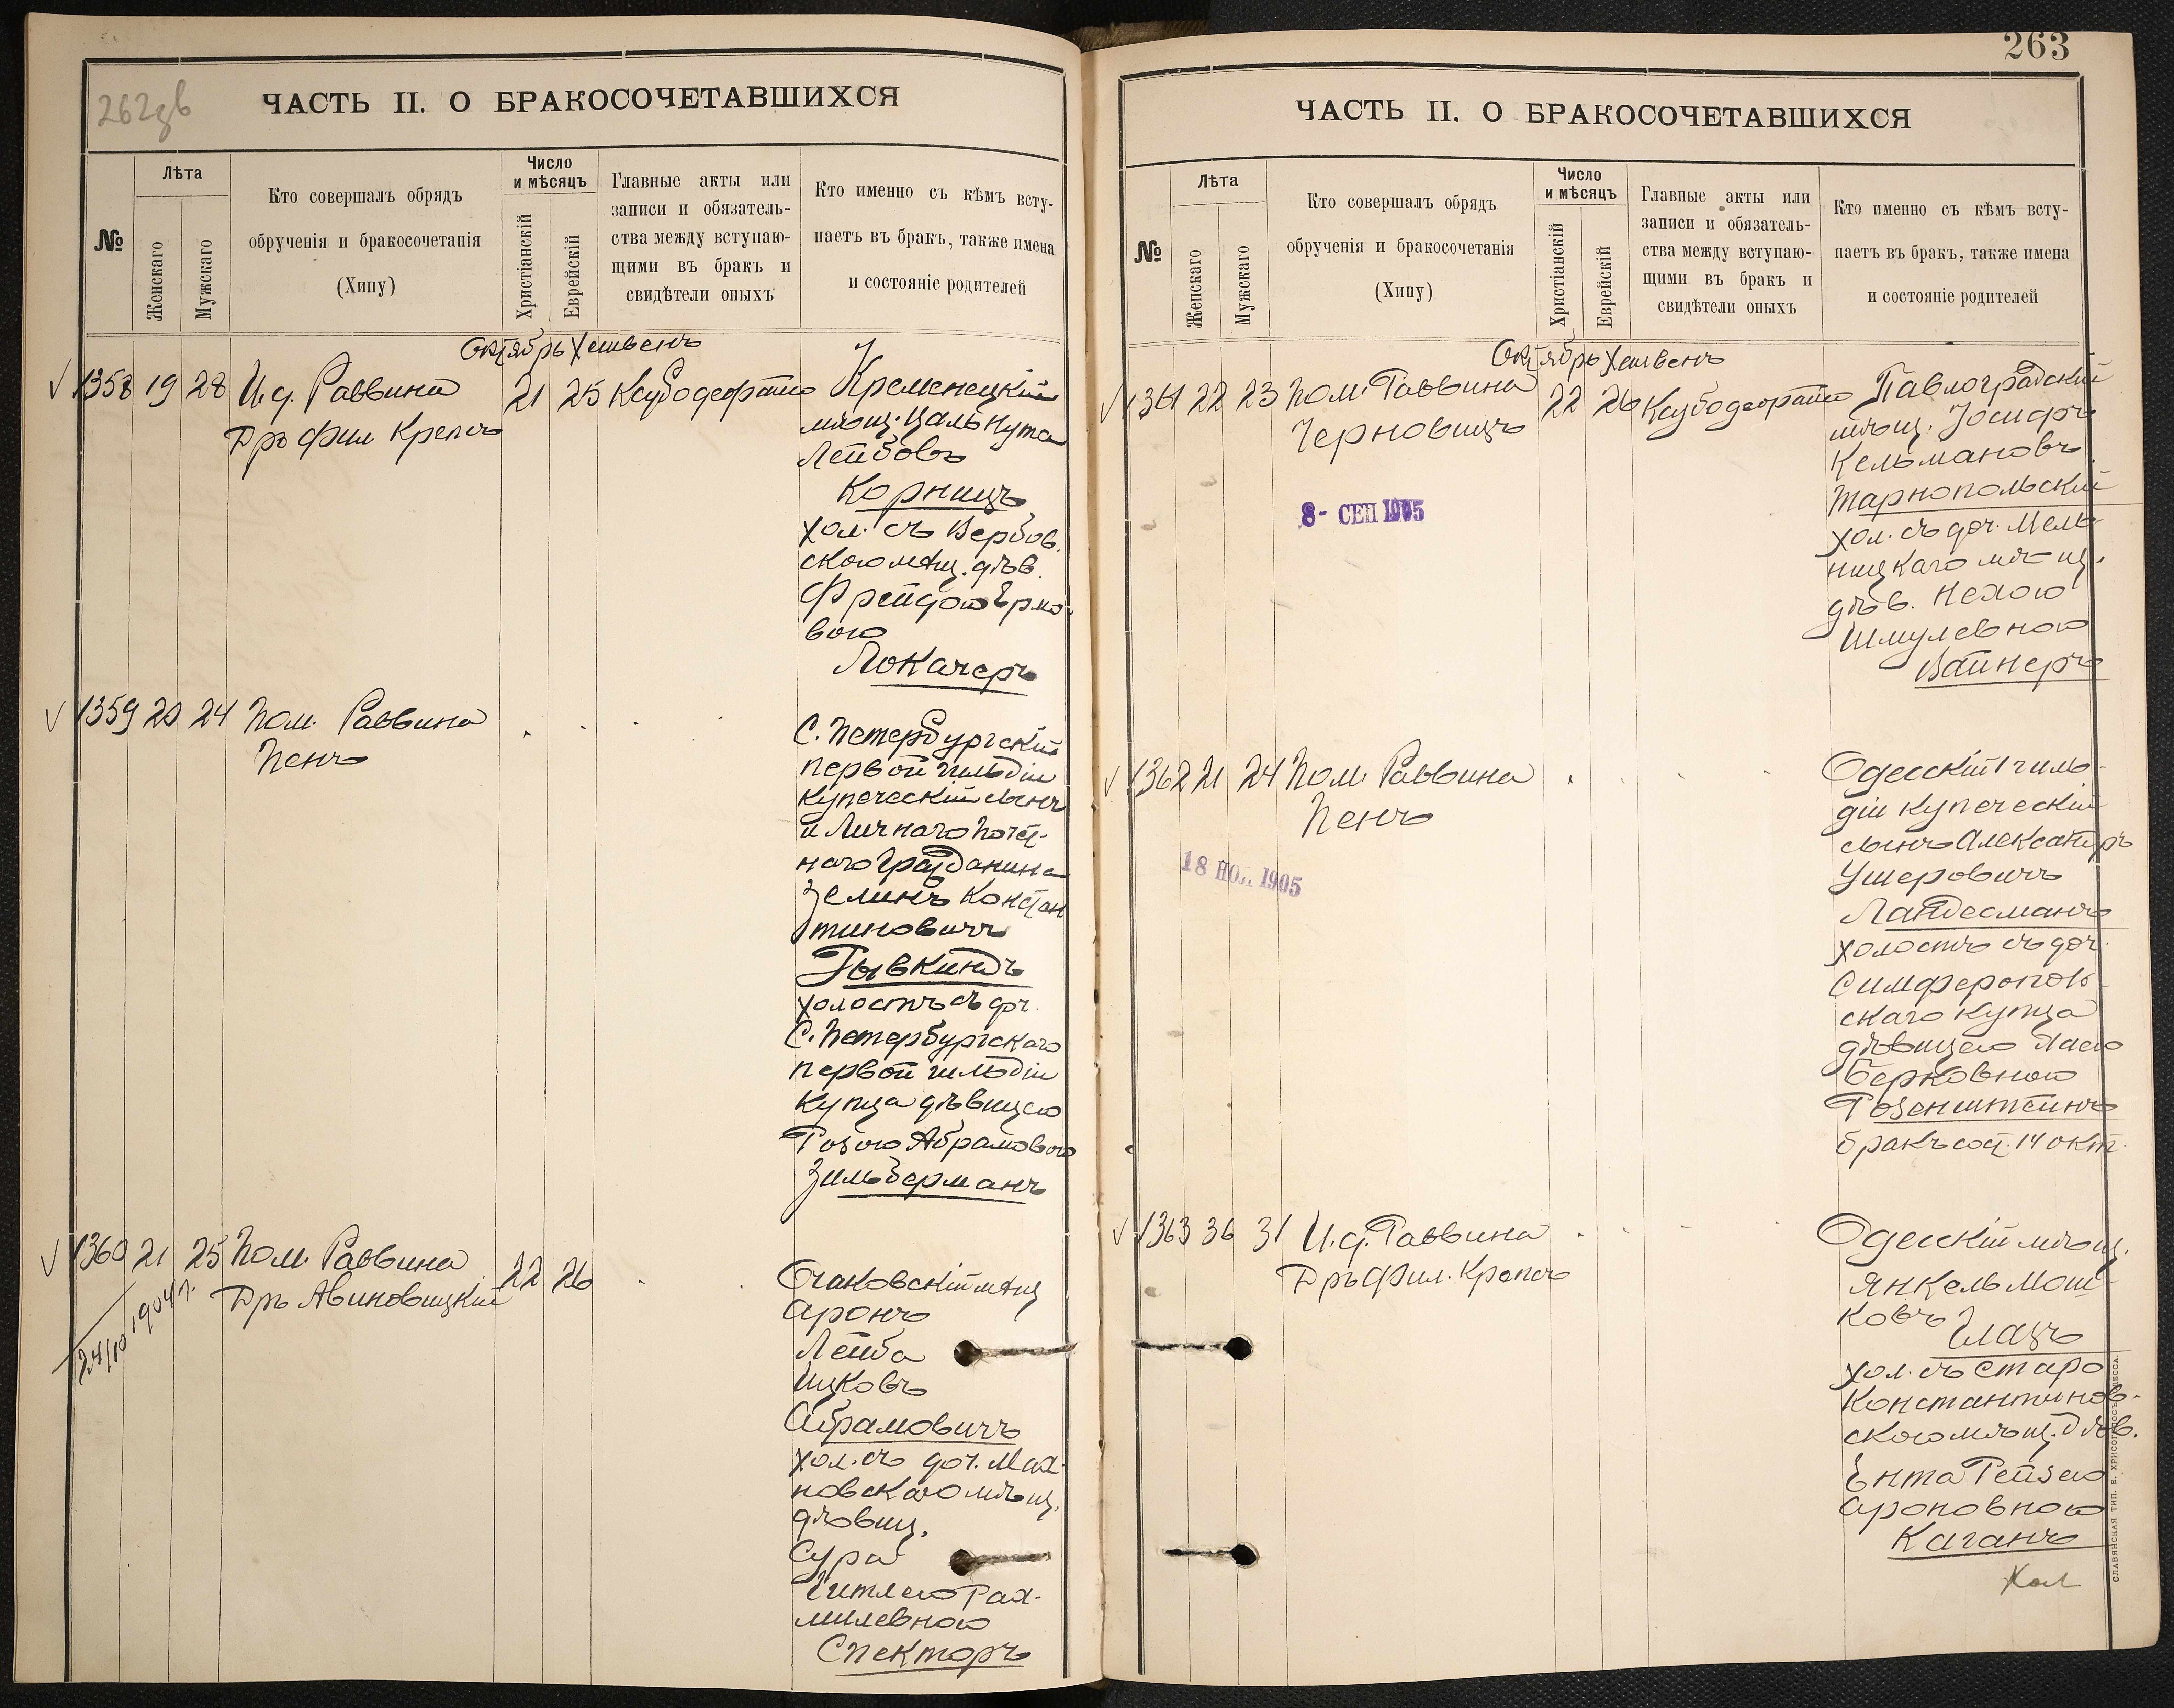 262зв
ЧАСТЬ II. О БРАКОСОЧЕТАВШИХСЯ
№
Лѣта
Женскаго
Мужскаго
Кто совершалъ обрядъ
обрученія и бракосочетанія
(Хипу)
Число
и мѣсяцъ
Христіанскій
Еврейскій
Главные акты или
записи и обязатель-
ства между вступаю-
щими въ бракъ и
свидѣтели оныхъ
Кто именно съ кѣмъ всту-
паетъ въ бракъ, также имена
и состояніе родителей
Октябрь Хешвенъ
1358 19 28 И.д. Раввина 21 25
Дръ Фил Крепсъ
Кременецкій
мѣщ. Цаль Нута
Лейбовъ
Корницъ
хол. съ Вербов.
скою мѣщ. дѣв.
Фрейдою
вою
Локачеръ
1359 20 24 Пом. Раввина
Пенъ
С. Петербургскій
первой гильдіи
купеческій сынъ
и Личнаго Почет-
наго Гражданина
Зелинъ Констан
тиновичъ
Рывкиндъ
холостъ съ доч.
С. Петербургскаго
первой гильдіи
купца дѣвицею
Розою Абрамовою
Зильберманъ
1360 21 25 Пом. Раввина 22 26
Дръ Авиновицкій
24/10 1904 г.
Очаковскій мѣщ
Аронъ
Лейба
Ицковъ
Абрамовичъ
хол. съ доч. Мах-
новскаго мѣщ.
дѣвиц.
Сура
Гитлею Рах-
милевною
Спекторъ
263
ЧАСТЬ II. О БРАКОСОЧЕТАВШИХСЯ
№
Лѣта
Женскаго
Мужскаго
Кто совершалъ обрядъ
обрученія и бракосочетанія
(Хипу)
Число
и мѣсяцъ
Христіанскій
Еврейскій
Главные акты или
записи и обязатель-
ства между вступаю-
щими въ бракъ и
свидѣтели оныхъ
Кто именно съ кѣмъ всту-
паетъ въ бракъ, также имена
и состояніе родителей
Октябрь Хешвенъ
1361 22 23 Пом. Раввина 22 26
Черновицъ
8- СЕП 1905
Павлоградскій
мѣщ. Іосифъ
Кельмановъ
Тарнопольскій
хол. съ доч. Мель
ницкаго мѣщ.
дѣв. Нехою
Шмулевною
Вайнеръ
1362 21 24 Пом. Раввина
Пенъ
18 НО.. 1905
Одесскій 1 гиль-
діи купеческій
сынъ Александръ
Ушеровичъ
Ландесманъ
холостъ съ доч.
Симферополь-
скаго купца
дѣвицею
Берковною
Розенштейнъ
бракъ сост. 14 окт.
1363 36 31 И.д. Раввина
Дръ Фил. Крепсъ
Одесскій мѣщ.
Янкель Мош-
ковъ
Глазъ
хол. съ Старо
Константинов-
скою мѣщ. дѣв.
Ента Рейзею
Ароновною
Каганъ
Хол
СЛАВЯНСКАЯ ТИП. Е. ХРИСОГЕЛОСЪ, ОДЕССА.